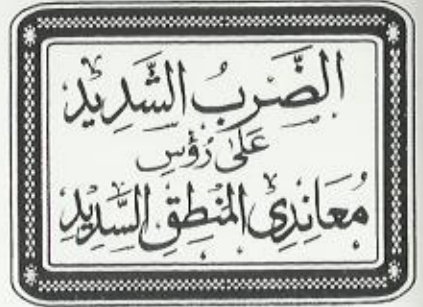 الضَّرْبُ الشَّدِيْدُ
عَلٰى رُؤُسِ
مُعَانِدِي الْمَنْطِقِ السَّدِيْدِ